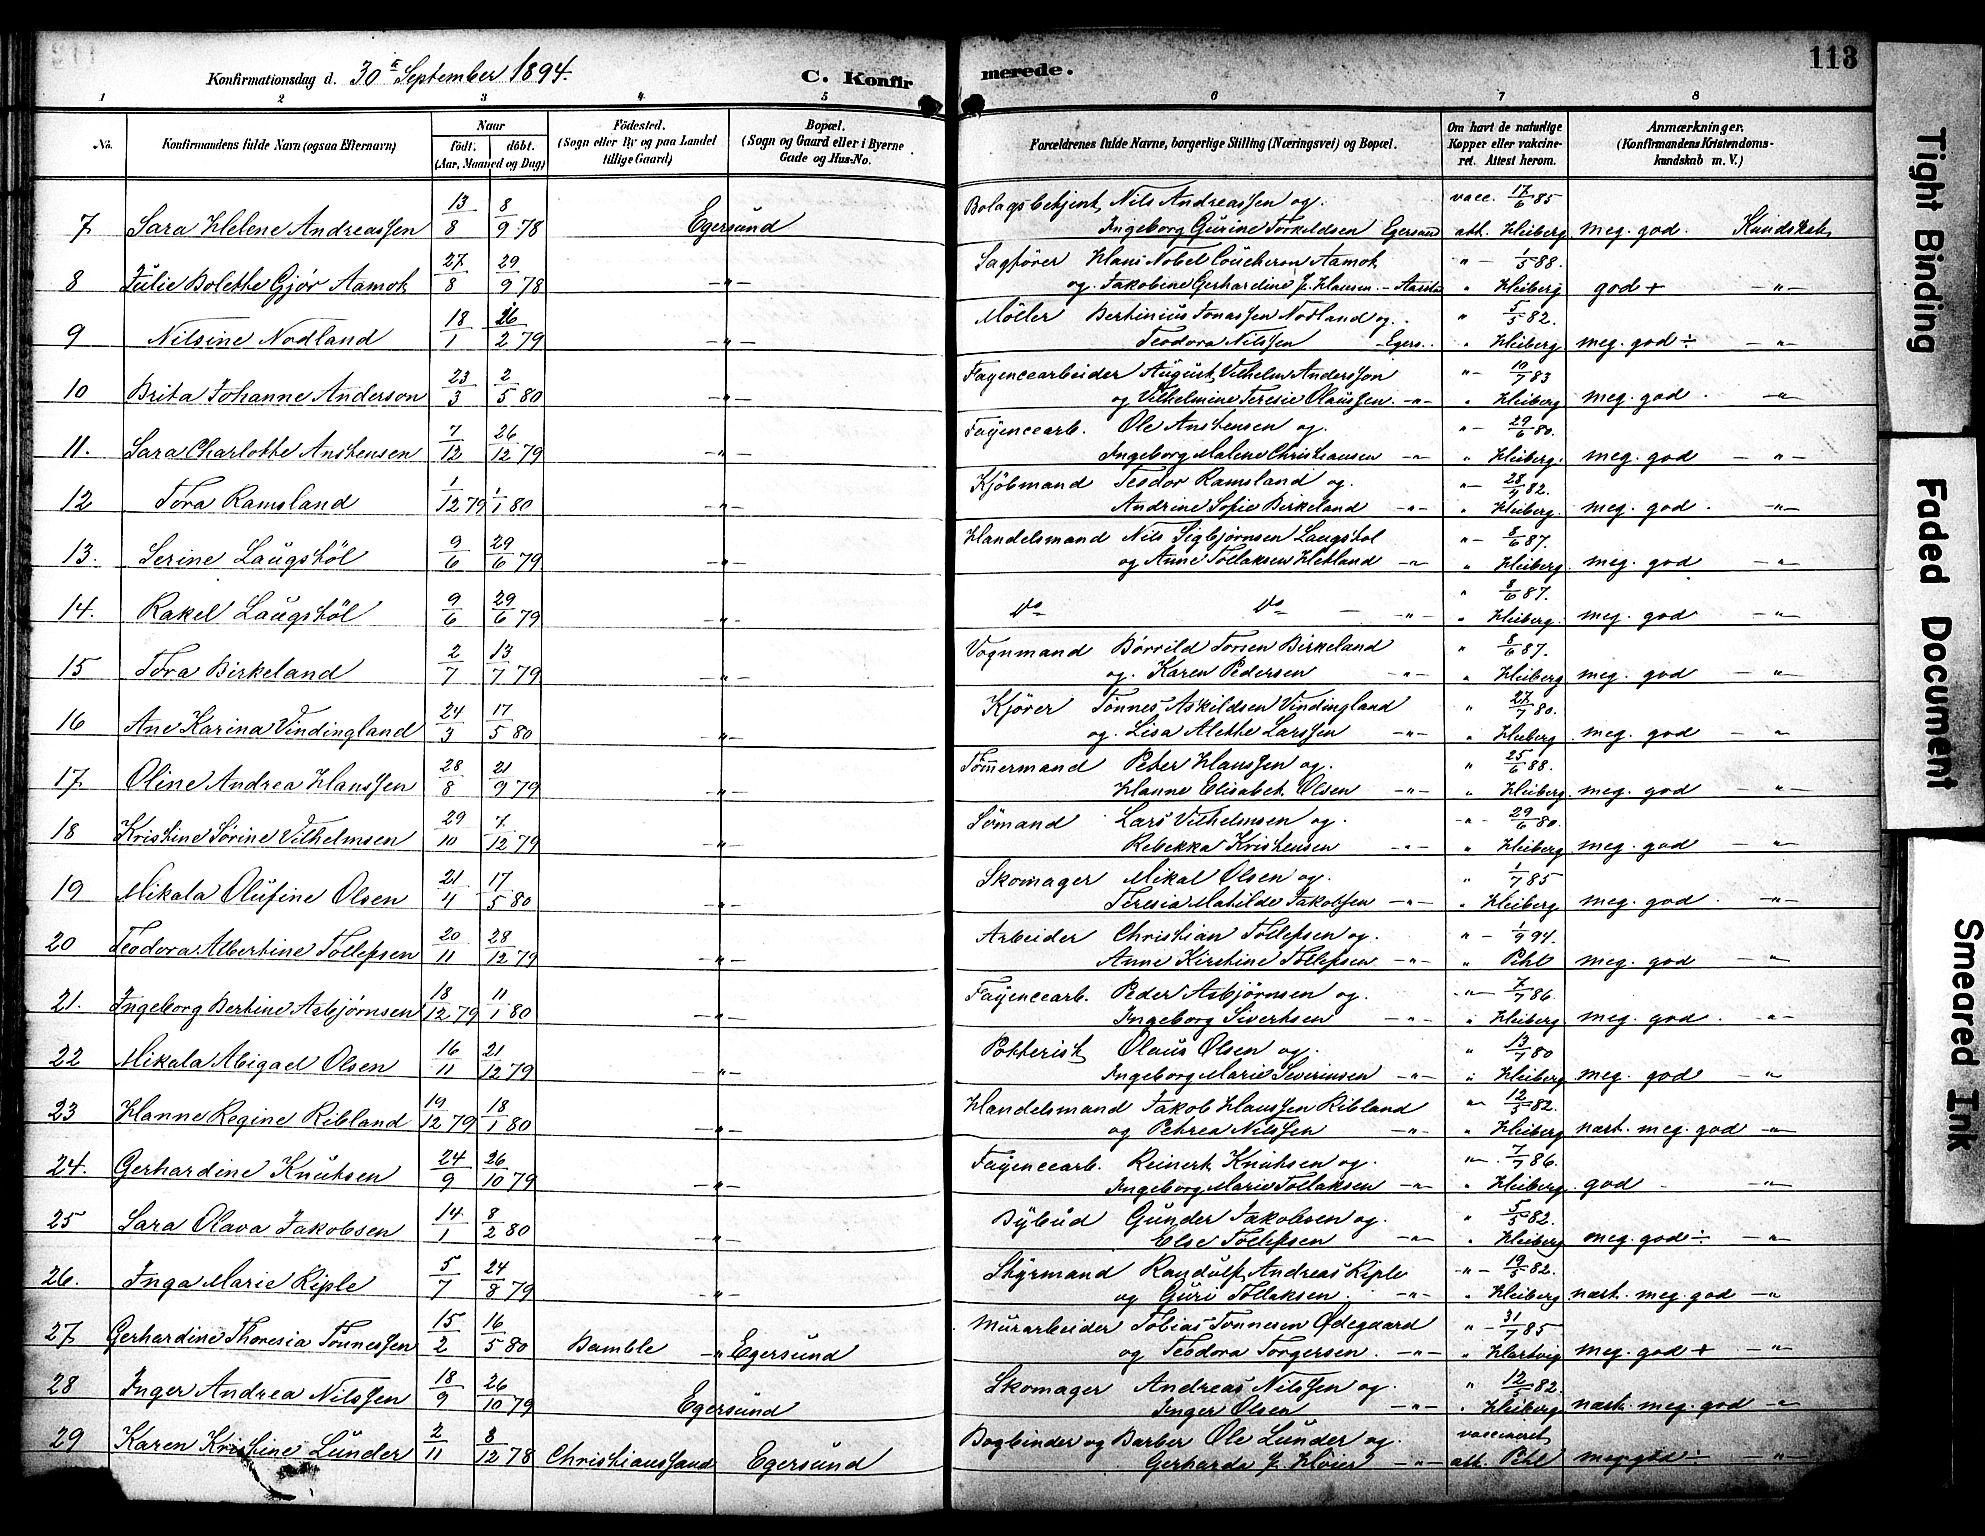 113
Konfirmationsdag d. 30te September 1894. C. Konfirmerede.
1 2 3 4 5 6 7 8
No. Konfirmandens fulde Navn (ogsaa Efternavn) Naar født. døbt. (Aar, Maaned og Dag) Födested. (Sogn eller By og paa Landet tillige Gaard) Bopæl. (Sogn og Gaard eller i Byerne Gade og Hus-No. Forældrenes fulde Navne, borgerlige Stilling (Næringsvei) og Bopæl. Om havt de naturlige Kopper eller vakcineret. Attest herom. Anmærkninger. (Konfirmandens Kristendomskundskab m. V.)
7 Sara Helene Andreassen 13/8 8/9 78 Egersund Bolagsbetjent Nils Andreassen og vacc. 17/6 85
Ingeborg Gurine Torkeldsen Egersund att. Heiberg meg. god. Kundskab
8 Julie Bolette Gjör Aamot 27/8 29/9 78 -"- Sagfører Hans Nobel Coucheron Aamot "- 1/5 88.
og Jakobine Gerhardine f. Hansen. " Heiberg god + -"-
9 Nilsine Nodland 18/1 26/2 79 -"- Möller Bertinius Jonassen Nodland og " 5/5 82.
Teodora Nilssen - Egers.. " Heiberg meg. god ÷ -"-
10 Brita Johanne Anderson 23/3 2/5 80 -"- Fayencearbeider August Vilhelm Andersson "- 10/7 83
og Vilhelmine Teresie Olaussen. -"- " Heiberg meg. god. -"-
11. Sara Charlotte Anstensen 7/12 26/12 79 -"- Fayencearb. Ole Anstensen og. "- 29/6 80.
Ingeborg Malene Christiansen -"- " Heiberg. meg. god -"-
12 Tora Ramsland 1/12 79 1/1 80 -"- Kjöbmand Teodor Ramsland og. "- 28/7 82.
Andrine Sofie Birkeland -"- " Heiberg. meg. god. -"-
13. Serine Laugstöl 9/6 29/6 79 -"- Handelsmand Nils Sigbjørnsen Laugstol "- 8/6 87.
og Anne Tollaksen Hetland -"- " Heiberg meg. god -"-
14. Rakel Laugstöl 9/6 29/6 79 -"- Do Do - -"- " 8/6 87.
" Heiberg. meg. god -"-
15 Tora Birkeland 2/7 13/7 79 -"- Vognmand Børrild Torsen Birkeland " 8/6 87.
og. Karen Pedersen -"- " Heiberg meg. god -"-
16 Ane Karina Vindingland 24/3 17/5 80 -"- Kjörer Tönnes Askildsen Vindingland " 27/7 80.
og. Lisa Alette Larssen -"- " Heiberg meg. god -"-
17. Oline Andrea Hanssen 28/8 21/9 79 -"- Tømmermand Peter Hanssen og. " 25/6 88.
Hanne Elisabet Olsen -"- " Heiberg. meg. god -"-
18 Kristine Sörine Vilhelmsen 29/10 7/12 79 -"- Sømand Lars Vilhelmsen og. -"- 29/6 80.
Rebekka Kristensen -"- " Heiberg meg. god -"-
19 Mikala Olufine Olsen 21/4 17/5 80 -"- Skomager Mikal Olsen og. " 1/7 85
Teresia Matilde Jakobsen -"- " Heiberg meg. god. -"-
20 Teodora Albertine Tollefsen 20/11 28/12 79 -"- Arbeider Christian Tollefsen og. "- 1/9 94.
Anne Kirstine Tollefsen -"- " Pehl meg. god -"-
21. Ingeborg Bertine Asbjørnsen 18/12 79 11/1 80 -"- Fayencearb. Peder Asbjörnsen og. -"- 7/7 86.
Ingeborg Sivertsen -"- " Heiberg meg. god. -"-
22 Mikala Abigael Olsen 16/11 21/12 79 -"- Potterist Olaus Olsen og. " 13/7 80
Ingeborg Marie Severinsen -"- " Heiberg meg. god -"-
23 Hanne Regine Ribland 19/12 79 18/1 80 -"- Handelsmand Jakob Hanssen Ribland "- 12/5 82.
og Petrea Nilssen -"- " Heiberg næst. meg. god -"-
24. Gerhardine Knutsen 24/9 26/10 79 -"- Fayencearb. Reinert Knutsen og. "- 7/7 86.
Ingeborg Marie Tollaksen -"- " Heiberg. god -"-
25 Sara Olava Jakobsen 14/1 8/2 80 -"- Bybud Gunder Jakobsen og. " 5/5 82.
Else Tollefsen -"- " Heiberg meg. god ÷ -"-
26. Inga Marie Riple 5/7 24/8 79 -"- Styrmand Randulf Andreas Riple -"- 19/5 82.
og Guri Tollaksen. -"- " Heiberg næst. meg. god -"-
27 Gerhardine Thoresia Tönnessen 15/2 16/5 80 Bamble -"- Egersund Murarbeider Tobias Tonnesen Ødegaard "- 31/7 85
og Teodora Torgersen. -"- " Hartvig meg. god + -"-
28 Inger Andrea Nilssen 18/9 26/10 79 Egersund Skomager Andreas Nilssen og. " 12/5 82.
Inger Olsen -"- " Heiberg næst. meg. god -"-
29 Karen Kristine Lunder 2/11 8/12 78 Christianssand Egersund Bogbinder og Barber Ole Lunder og. vaccineret
Gerharda f. Höier -"- att. Pehl meg. god ÷ -"-
Tight Binding
Faded Document
Smeared Ink